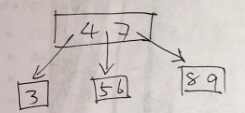 4 7
3 56 89